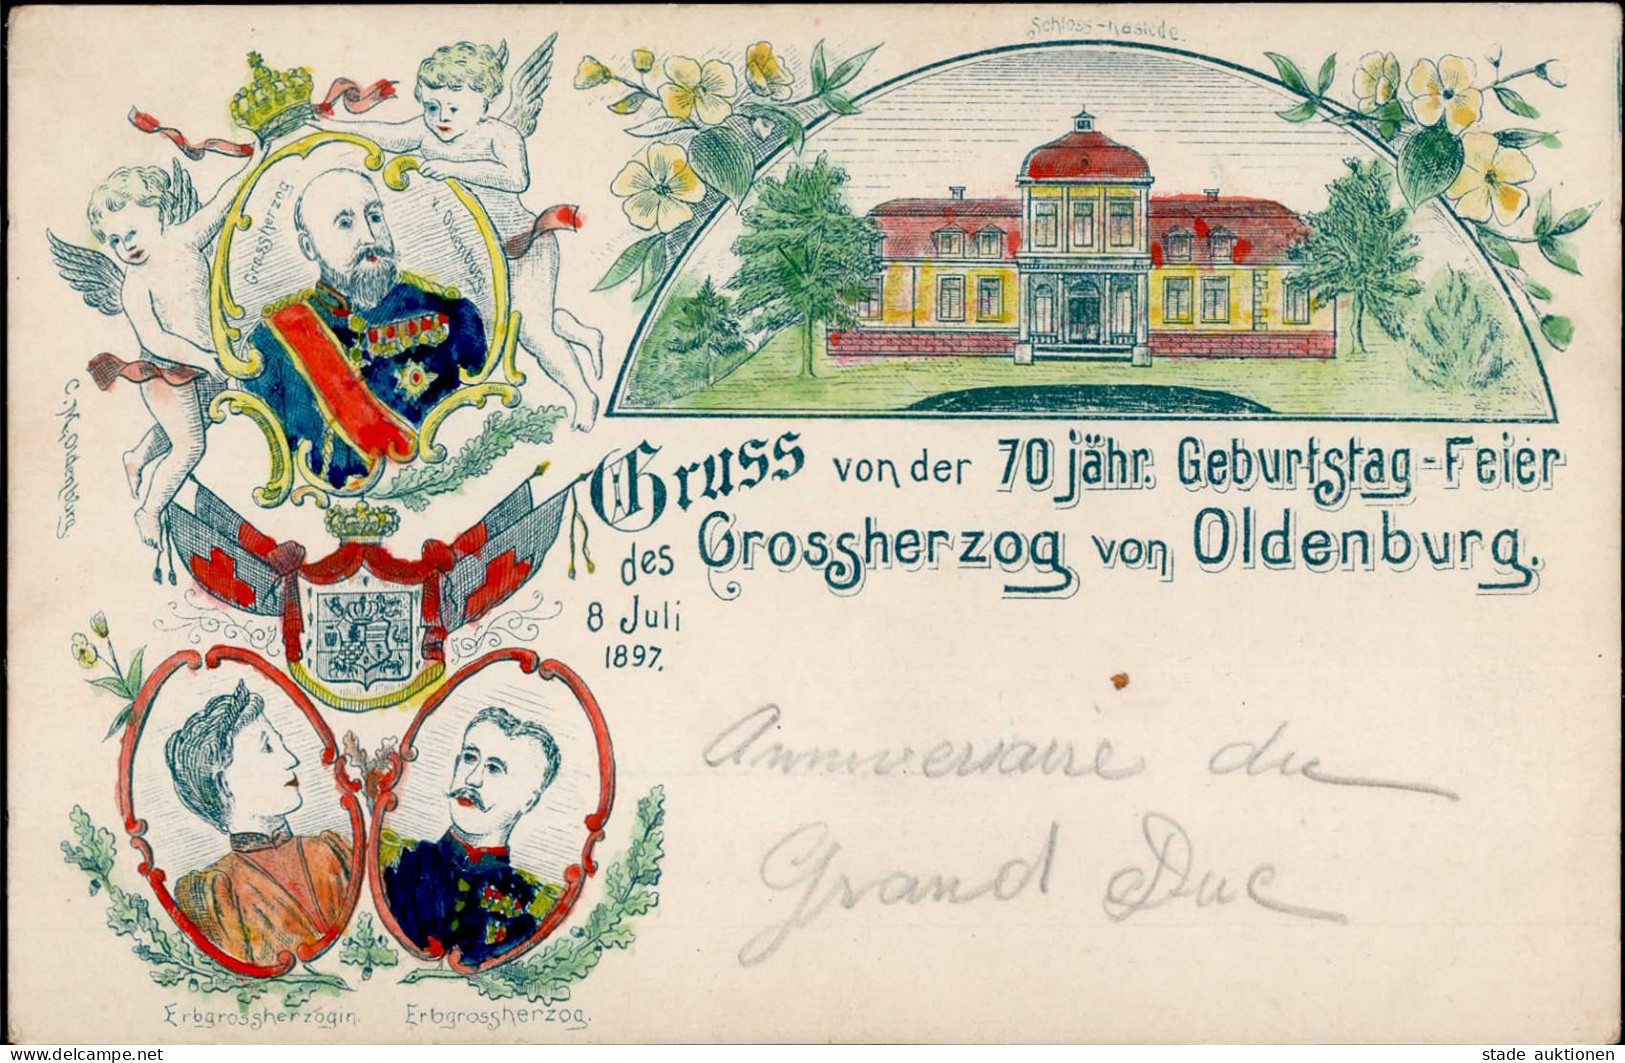 Schloss-Rasiede.
Grossherzog
v. Oldenburg.
C. N, Oldenburg
Gruss von der 70 jähr. Geburtstag-Feier
des Grossherzog von Oldenburg.
8 Juli
1897.
Anniversaire du
Grand Duc
Erbgrossherzogin. Erbgrossherzog.
www.delcampe.net
stade auktionen